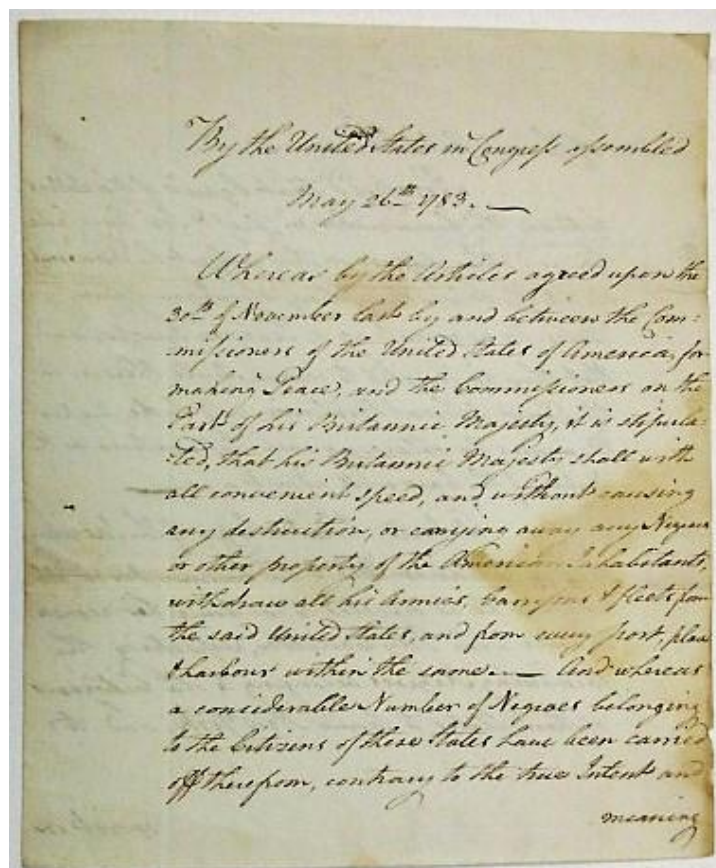 By the United States in Congress assembled
May 26th 1783.
Whereas by the Articles agreed upon the
30th of November last by and between the Com=
missioners of the United States of America, for
making Peace, and the Commissioners on the
Part of his Britannic Majesty, it is stipula=
=ted, that his Britannic Majesty shall with
all convenient speed, and without causing
any destruction, or carrying away any Negroes
or other property of the American Inhabitants,
withdraw all his Armies, Garrisons & fleets from
the said United States, and from every port, place
& harbour within the same. — And whereas
a considerable Number of Negroes belonging
to the Citizens of these States have been carried
off therefrom, contrary to the true Intent and
meaning